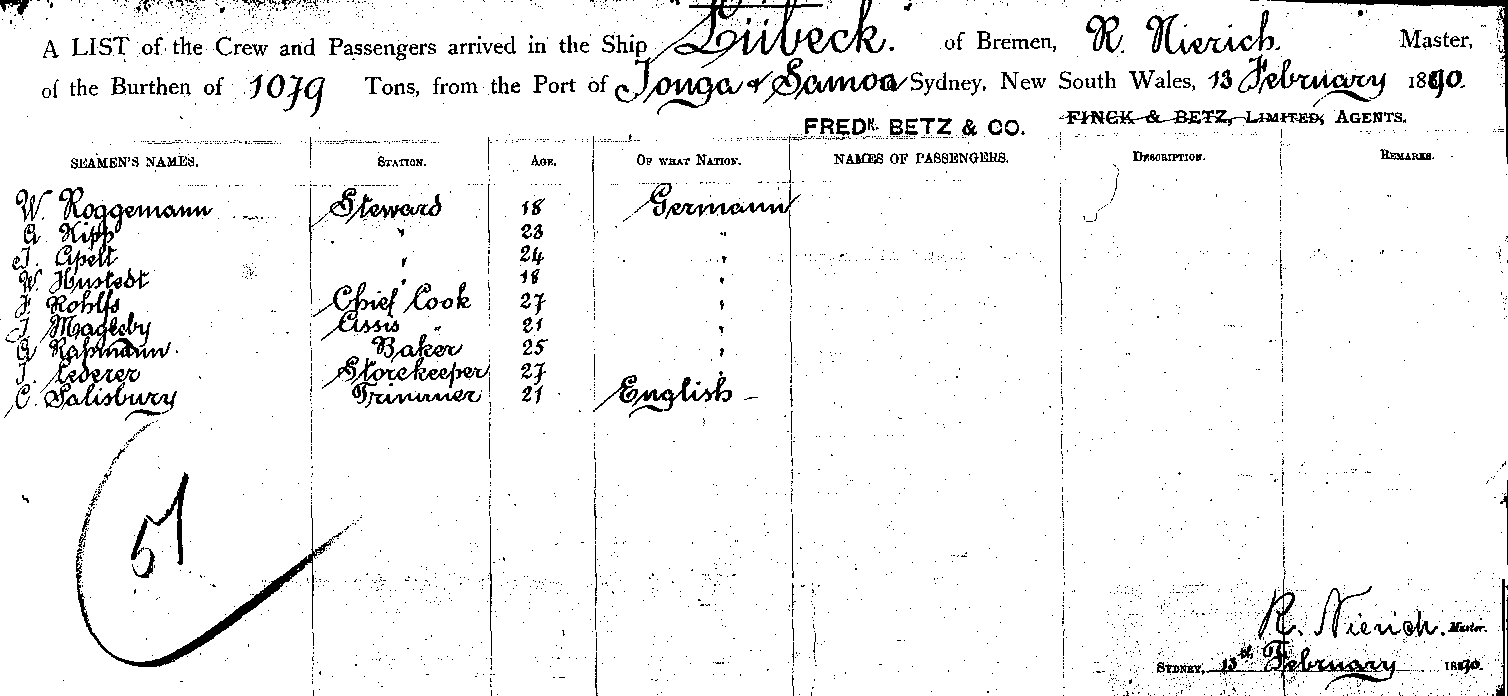 A LIST of the Crew and Passengers arrived in the Ship Lübeck. of Bremen, R. Nierich. Master,
of the Burthen of 1079 Tons, from the Port of Tonga & Samoa Sydney, New South Wales, 13 February 1890.
FREDK. BETZ & CO. FINCK & BETZ, LIMITED, AGENTS.
SEAMEN'S NAMES. STATION. AGE. OF WHAT NATION. NAMES OF PASSENGERS. DESCRIPTION. REMARKS.
W. Roggemann Steward 18 Germann
A Kipp " 23 "
J. Apelt " 24 "
W. Hustedt " 18 "
F Rohlfs Chief Cook 27 "
J Magleby Assis " 21 "
G Rahmann. Baker 25 "
J. Lederer Storekeeper 27 "
C. Salisbury Trimmer 21 English
57
R. Nierich. Master.
SYDNEY, 13th February 1890.